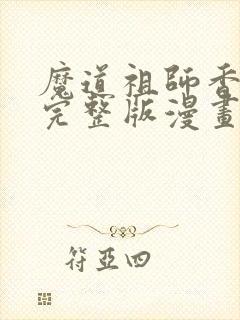 魔道祖師香
完整版漫畫
符亞四